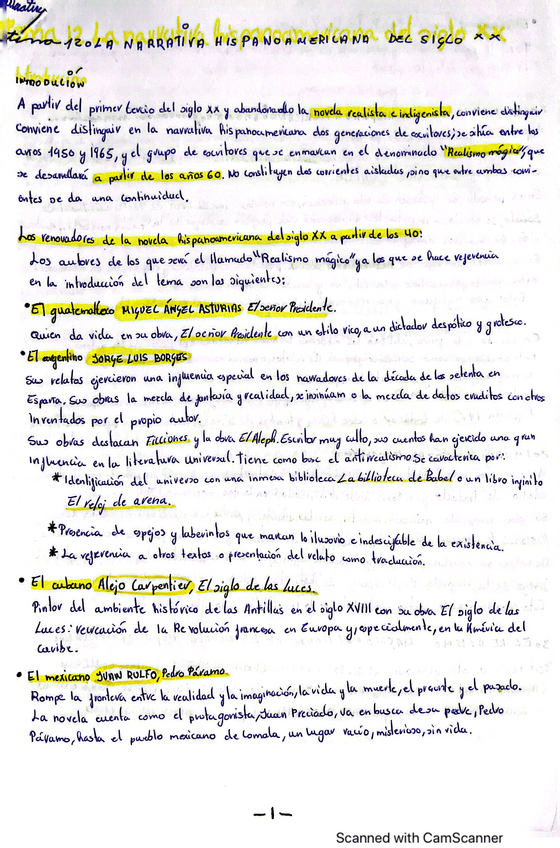 Tema 12. La narrativa hispanoamericana del siglo XX
tema 12: LA NARRATIVA HISPANOAMERICANA DEL SIGLO XX
Introducción
INTRODUCIÓN
A partir del primer tercio del siglo XX y abandonado la novela realista e indigenista, conviene distinguir
conviene distinguir en la narrativa hispanoamericana dos generaciones de escritores; se sitúa entre los
años 1950 y 1965, y el grupo de escritores que se enmarcan en el denominado "Realismo mágico", que
se desarrollará a partir de los años 60. No constituyen dos corrientes aisladas, sino que entre ambas corri-
entes se da una continuidad.
Los renovadores de la novela hispanoamericana del siglo XX a partir de los 40:
Los autores de los que será el llamado "Realismo mágico" ya los que se hace referencia
en la introducción del tema son los siguientes:
•El guatemalteco MIGUEL ÁNGEL ASTURIAS El señor Presidente.
Quien da vida en su obra, El señor Presidente con un estilo rico, a un dictador despótico y grotesco.
•El argentino JORGE LUIS BORGES
Sus relatos ejercieron una influencia especial en los narradores de la década de los setenta en
España. Sus obras la mezcla de fantasía y realidad, o la mezcla de datos eruditos con otros
inventados por el propio autor.
Sus obras destacan Ficciones y la obra El Aleph. Escritor muy culto, sus cuentos han ejercido una gran
influencia en la literatura universal. Tiene como base el antirrealismo. Se caracteriza por:
*Identificación del universo con una inmesa biblioteca La biblioteca de Babel o un libro infinito
El reloj de arena.
*Presencia de espejos y laberintos que marcan lo ilusorio e indescifable de la existencia.
* La referencia a otros textos o presentación del relato como traducción.
• El cubano Alejo Carpentier, El siglo de las luces.
Pintor del ambiente histórico de las Antillas en el siglo XVIII con su obra El siglo de las
Luces: recreación de la Revolución francesa en Europa y, especialmente, en la América del
Caribe.
• El mexicano JUAN RULFO, Pedro Páramo.
Rompe la frontera entre la realidad y la imaginación, la vida y la muerte, el presente y el pasado.
La novela cuenta como el protagonista, Juan Preciado, va en busca de su padre, Pedro
Páramo, hasta el pueblo mexicano de Comala, un lugar vacío, misterioso, sin vida.
-1-
Scanned with CamScanner